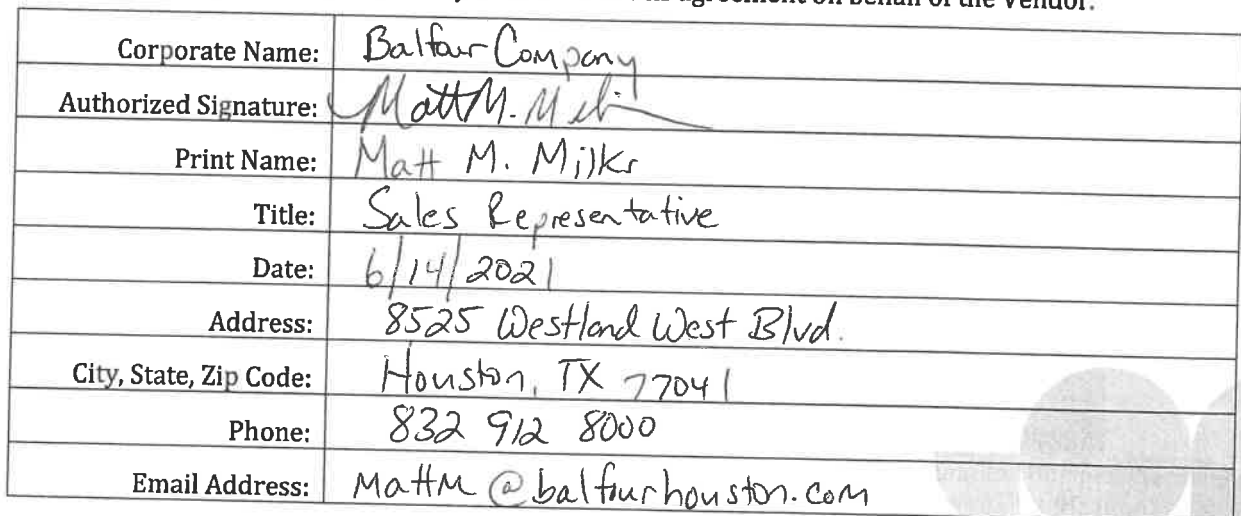 agreement on behalf of the Vendor.
Corporate Name: Balfour Company
Authorized Signature: Matt M.
Print Name: Matt M. Milks
Title: Sales Representative
Date: 6/14/2021
Address: 8525 Westland West Blvd.
City, State, Zip Code: Houston, TX 77041
Phone: 832 912 8000
Email Address: MattM@balfourhouston.com